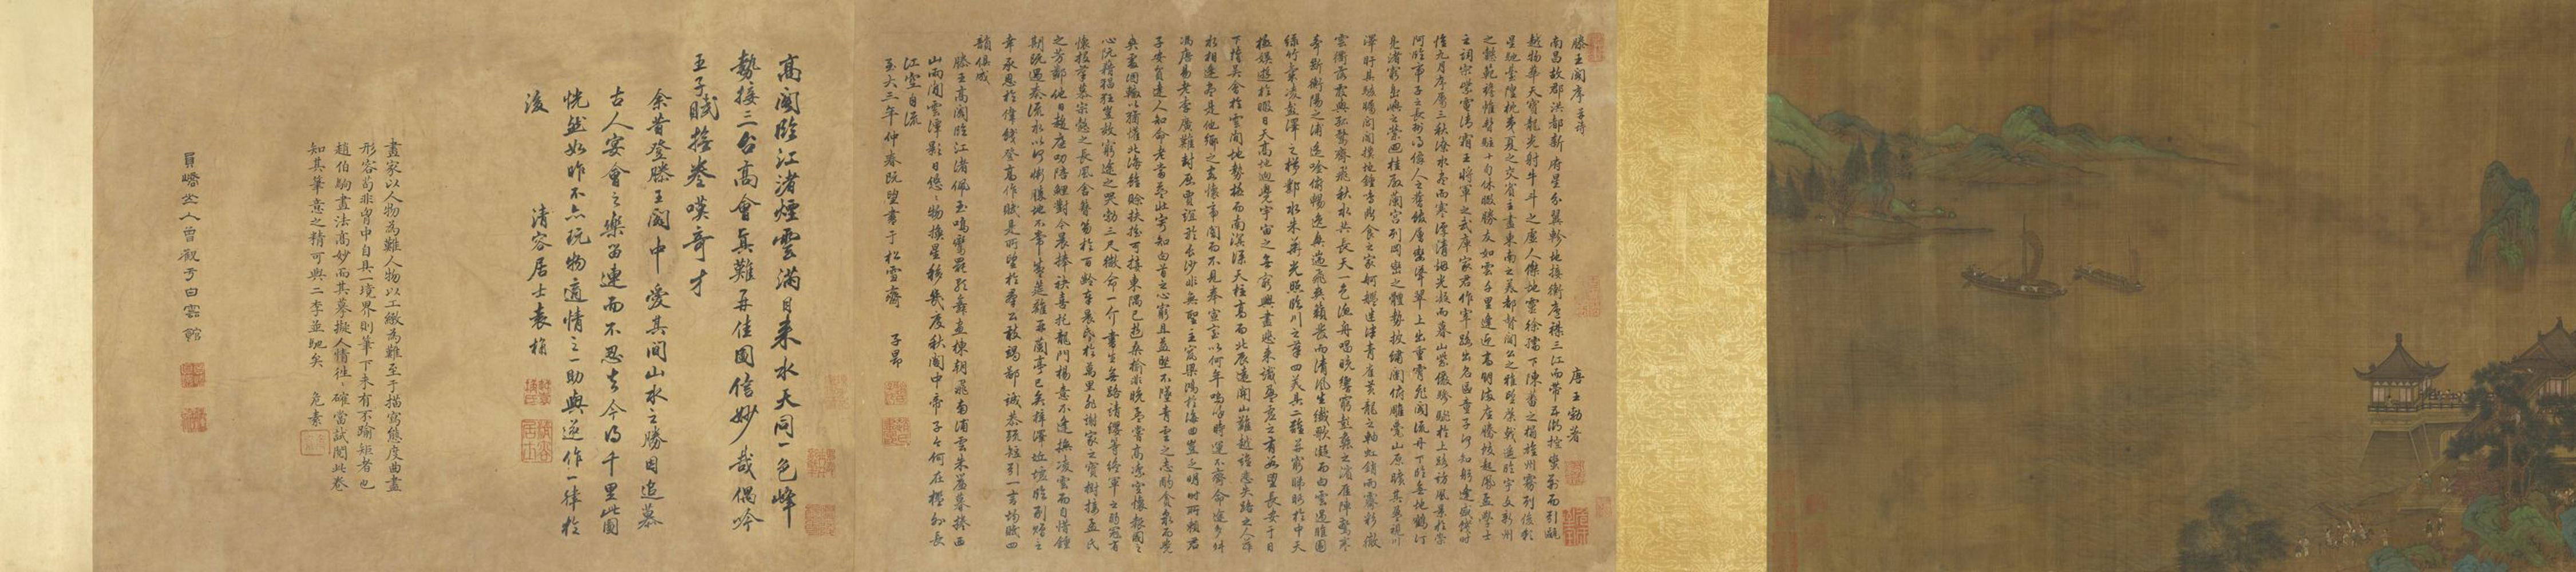 滕王閣序 并詩 唐 王勃著
南昌故郡洪都新府星分翼軫地接衡廬襟三江而帶五湖控蠻荊而引甌
越物華天寶龍光射牛斗之墟人傑地靈徐孺下陳蕃之榻雄州霧列俊彩
星馳臺隍枕夷夏之交賓主盡東南之美都督閻公之雅望棨戟遙臨宇文新州
之懿範襜帷暫駐十旬休暇勝友如雲千里逢迎高朋滿座騰蛟起鳳孟學士
之詞宗紫電清霜王將軍之武庫家君作宰路出名區童子何知躬逢勝餞時
惟九月序屬三秋潦水盡而寒潭清煙光凝而暮山紫儼驂騑於上路訪風景於崇
阿臨帝子之長洲得僊人之舊館層巒聳翠上出重霄飛閣流丹下臨無地鶴汀
鳧渚窮島嶼之縈迴桂殿蘭宮列岡巒之體勢披繡闥俯雕甍山原曠其盈視川
澤盱其駭矚閭閻撲地鐘鳴鼎食之家舸艦迷津青雀黃龍之軸虹銷雨霽彩徹
雲衢落霞與孤鶩齊飛秋水共長天一色漁舟唱晚響窮彭蠡之濱雁陣驚寒
聲斷衡陽之浦遙吟俯暢逸興遄飛爽籟發而清風生纖歌凝而白雲遏睢園
綠竹氣凌彭澤之樽鄴水朱華光照臨川之筆四美具二難并窮睇眄於中天
極娛遊於暇日天高地迥覺宇宙之無窮興盡悲來識盈虛之有數望長安于日
下指吳會於雲間地勢極而南溟深天柱高而北辰遠關山難越誰悲失路之人萍
水相逢盡是他鄉之客懷帝閽而不見奉宣室以何年嗚呼時運不齊命途多舛
馮唐易老李廣難封屈賈誼於長沙非無聖主竄梁鴻於海曲豈乏明時所賴君
子安貧達人知命老當益壯寧知白首之心窮且益堅不墜青雲之志酌貪泉而覺
爽處涸轍以猶懽北海雖賒扶搖可接東隅已逝桑榆非晚孟嘗高潔空懷報國之
心阮籍猖狂豈效窮途之哭勃三尺微命一介書生無路請纓等終軍之弱冠有
懷投筆慕宗愨之長風舍簪笏於百齡奉晨昏於萬里非謝家之寶樹接孟氏
之芳鄰他日趨庭叨陪鯉對今晨捧袂喜托龍門楊意不逢撫凌雲而自惜鍾
期既遇奏流水以何慚勝地不常盛筵難再蘭亭已矣梓澤坵墟臨別贈言
幸承恩於偉餞登高作賦是所望於群公敢竭鄙誠恭疏短引一言均賦四
韻俱成
滕王高閣臨江渚佩玉鳴鸞罷歌舞畫棟朝飛南浦雲朱簾暮捲西
山雨閒雲潭影日悠悠物換星移幾度秋閣中帝子今何在檻外長
江空自流
至大三年仲春既望書于松雪齋 子昂
高閣臨江渚煙雲滿目來水天同一色峰
勢接三台高會真難再佳圖信妙哉偶吟
王子賦捲卷嘆奇才
余昔登滕王閣中愛其間山水之勝因追慕
古人宴會之樂留連而不忍去今得千里此圖
恍然如昨不亦玩物適情之一助與遂作一律於
後
清容居士袁桷
畫家以人物為難人物以工緻為難至于描寫態度曲盡
形容苟非胷中自具一境界則筆下未有不踰矩者也
趙伯駒畫法高妙而其摹擬人情往往確當試閱此卷
知其筆意之精可與二李並馳矣 危素
員嶠山人曾觀于白雲館